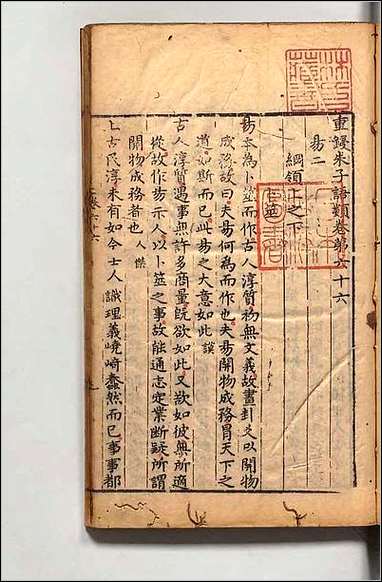 重鋟朱子語類卷第六十六
易二
綱領上之下
易本為卜筮而作古人淳質初無文義故畫卦爻以開物
成務故曰夫易何為而作也夫易開物成務冒天下之
道如斯而已此易之大意如此謨
古人淳質遇事無許多商量既欲如此又欲如彼無所適
從故作易示人以卜筮之事故能通志定業斷疑所謂
開物成務者也人傑
上古民淳未有如今士人識理義嶢崎蠢然而已事事都